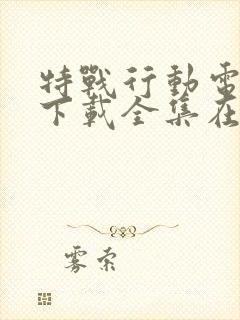 特戰行動電
下載全集在
雾索